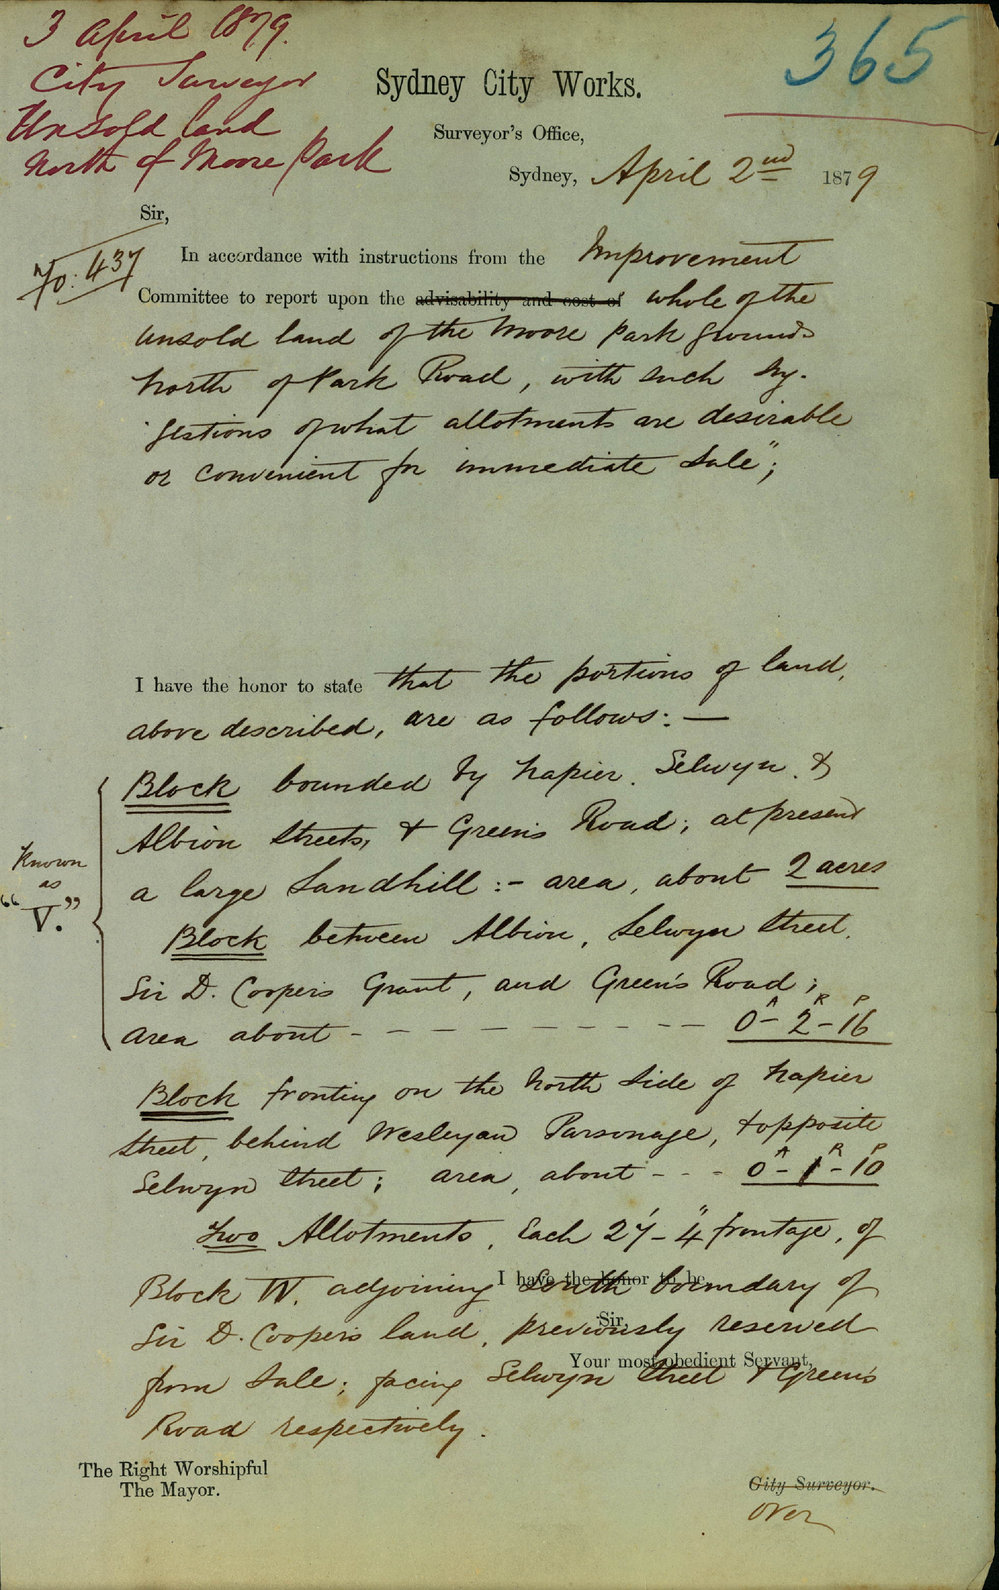 3 April 1879.
City Surveyor
Unsold land
North of Moore Park
365
Sydney City Works.
Surveyor's Office,
Sydney, April 2nd 1879
Sir,
No: 437
In accordance with instructions from the Improvement
Committee to report upon the advisability and cost of whole of the
unsold land of the Moore Park grounds
North of Park Road, with such sug-
gestions of what allotments are desirable
or convenient for immediate Sale";
I have the honor to state that the portions of land,
above described, are as follows: —
Block bounded by Napier, Selwyn, &
Albion Streets, & Green's Road; at present
a large Sandhill :- area, about 2 acres
Known
as
"V."
Block between Albion, Selwyn Street,
Sir D. Cooper's Grant, and Green's Road;
A R P
area about - - - - - - - - - 0 - 2 - 16
Block fronting on the North Side of Napier
Street, behind Wesleyan Parsonage, & opposite
A R P
Selwyn Street; area, about - - - 0 - 1 - 10
Two Allotments, Each 27' - 4" frontage, of
I have the honor to be,
Block W. adjoining South boundary of
Sir,
Sir D. Cooper's land, previously reserved
Your most obedient Servant,
from Sale; facing Selwyn Street & Green's
Road respectively.
The Right Worshipful
The Mayor.
City Surveyor.
over